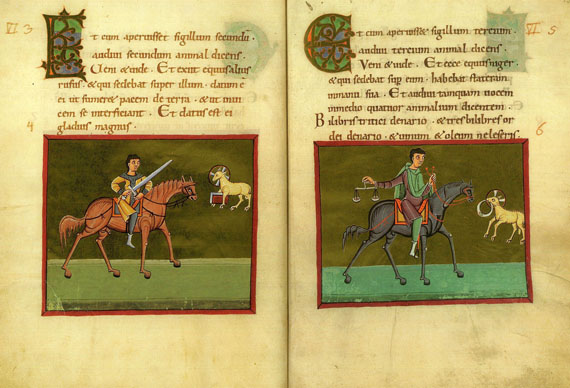 VI 3
Et cum aperuisset sigillum secundū.
audiui secundum animal dicens.
Veni & uide. Et exiuit equus alius
rufus. & qui sedebat super illum. datum e
ei ut sumeret pacem de terra. & ut inui
cem se interficiant. Et datus est ei
gladius magnus.
4
VI 5
Et cum aperuisset sigillum tertium.
audiui tertium animal dicens.
Veni & uide. Et ecce equus niger
& qui sedebat sup eum. habebat stateram
in manu sua. Et audiui tamquam uocem
in medio quatuor animalium dicentem.
Bilibris tritici denario. & tres bilibres or
dei denario. & uinum & oleum ne leseris.
6